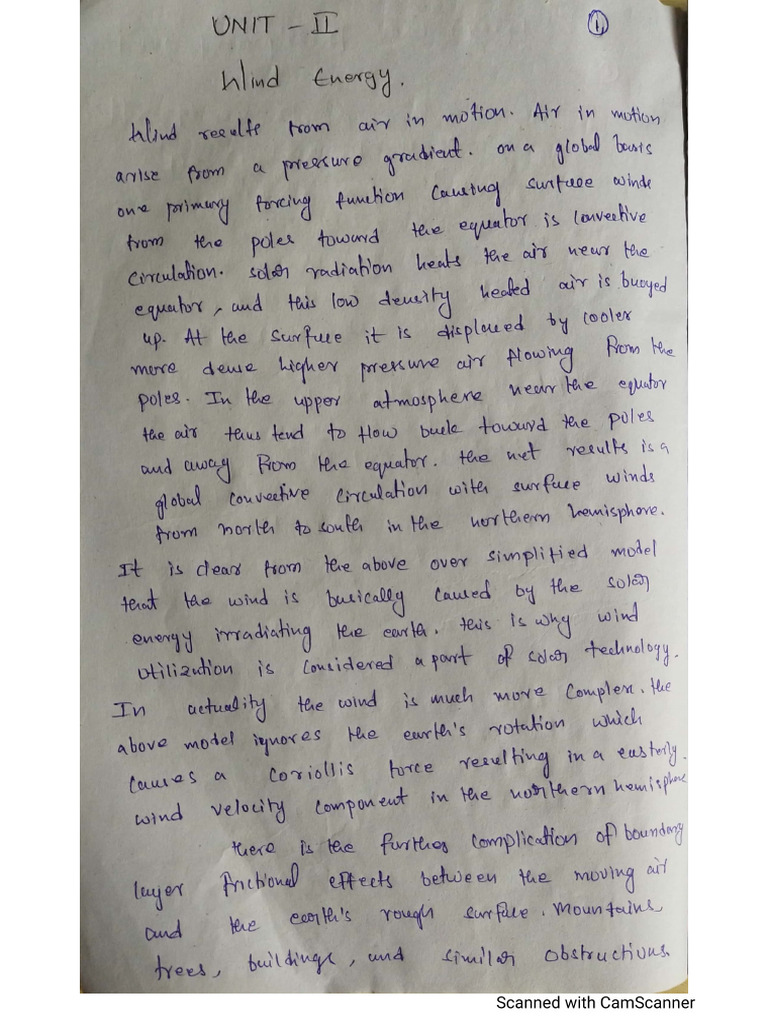 UNIT - II
1
Wind Energy.
Wind results from air in motion. Air in motion
arise from a pressure gradient. on a global basis
one primary forcing function causing surface winds
from the poles toward the equator is convective
circulation. solar radiation heats the air near the
equator, and this low density heated air is buoyed
up. At the surface it is displaced by cooler
more dense higher pressure air flowing from the
poles. In the upper atmosphere near the equator
the air thus tend to flow back toward the poles
and away from the equator. the net results is a
global convective circulation with surface winds
from north to south in the northern hemisphere.
It is clear from the above over simplified model
that the wind is basically caused by the solar
energy irradiating the earth. this is why wind
utilization is considered a part of solar technology.
In actuality the wind is much more complex. the
above model ignores the earth's rotation which
causes a coriollis force resulting in a easterly
wind velocity component in the northern hemisphere
there is the further complication of boundary
layer frictional effects between the moving air
and the earth's rough surface. mountains,
trees, buildings, and similar obstructions.
Scanned with CamScanner